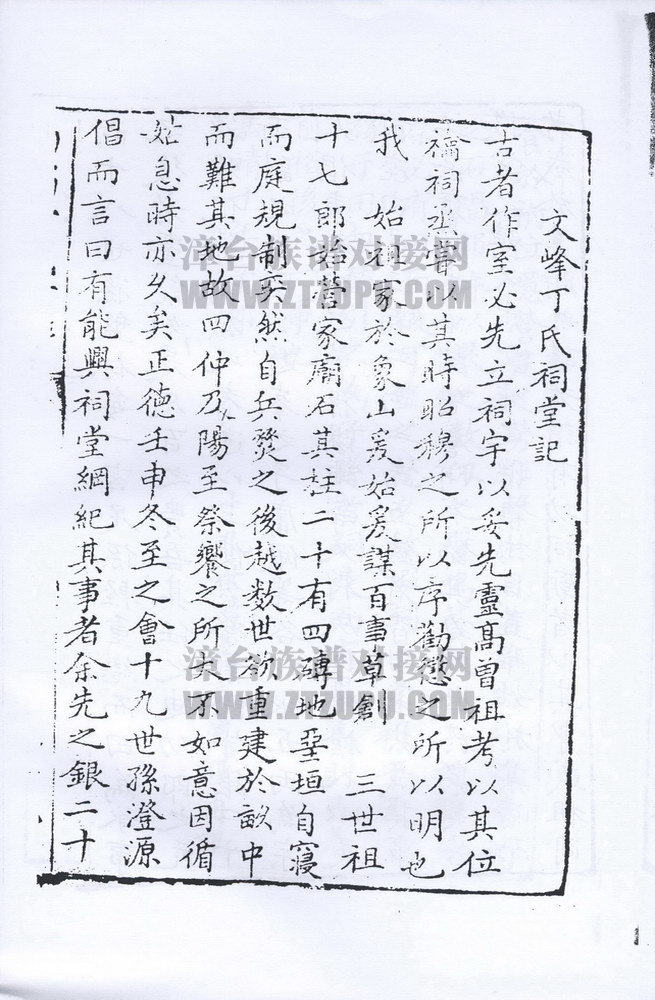 文峰丁氏祠堂記
古者作室必先立祠宇以妥先靈高曾祖考以其位
禴祠烝嘗以其時昭穆之所以序勸懲之所以明也
我 始祖家於象山爰始爰謀百事草創 三世祖
十七郎始營家廟石其柱二十有四磚地堊垣自寢
而庭規制奕然自兵燹之後越数世欲重建於畝中
而難其地故四仲乃陽至祭饗之所大不如意因循
姑息時亦久矣正德壬申冬至之會十九世孫澄源
倡而言曰有能興祠堂綱紀其事者余先之銀二十
漳台族谱对接网
WWW.ZTZUPU.COM
漳台族谱对接网
WWW.ZTZUPU.COM